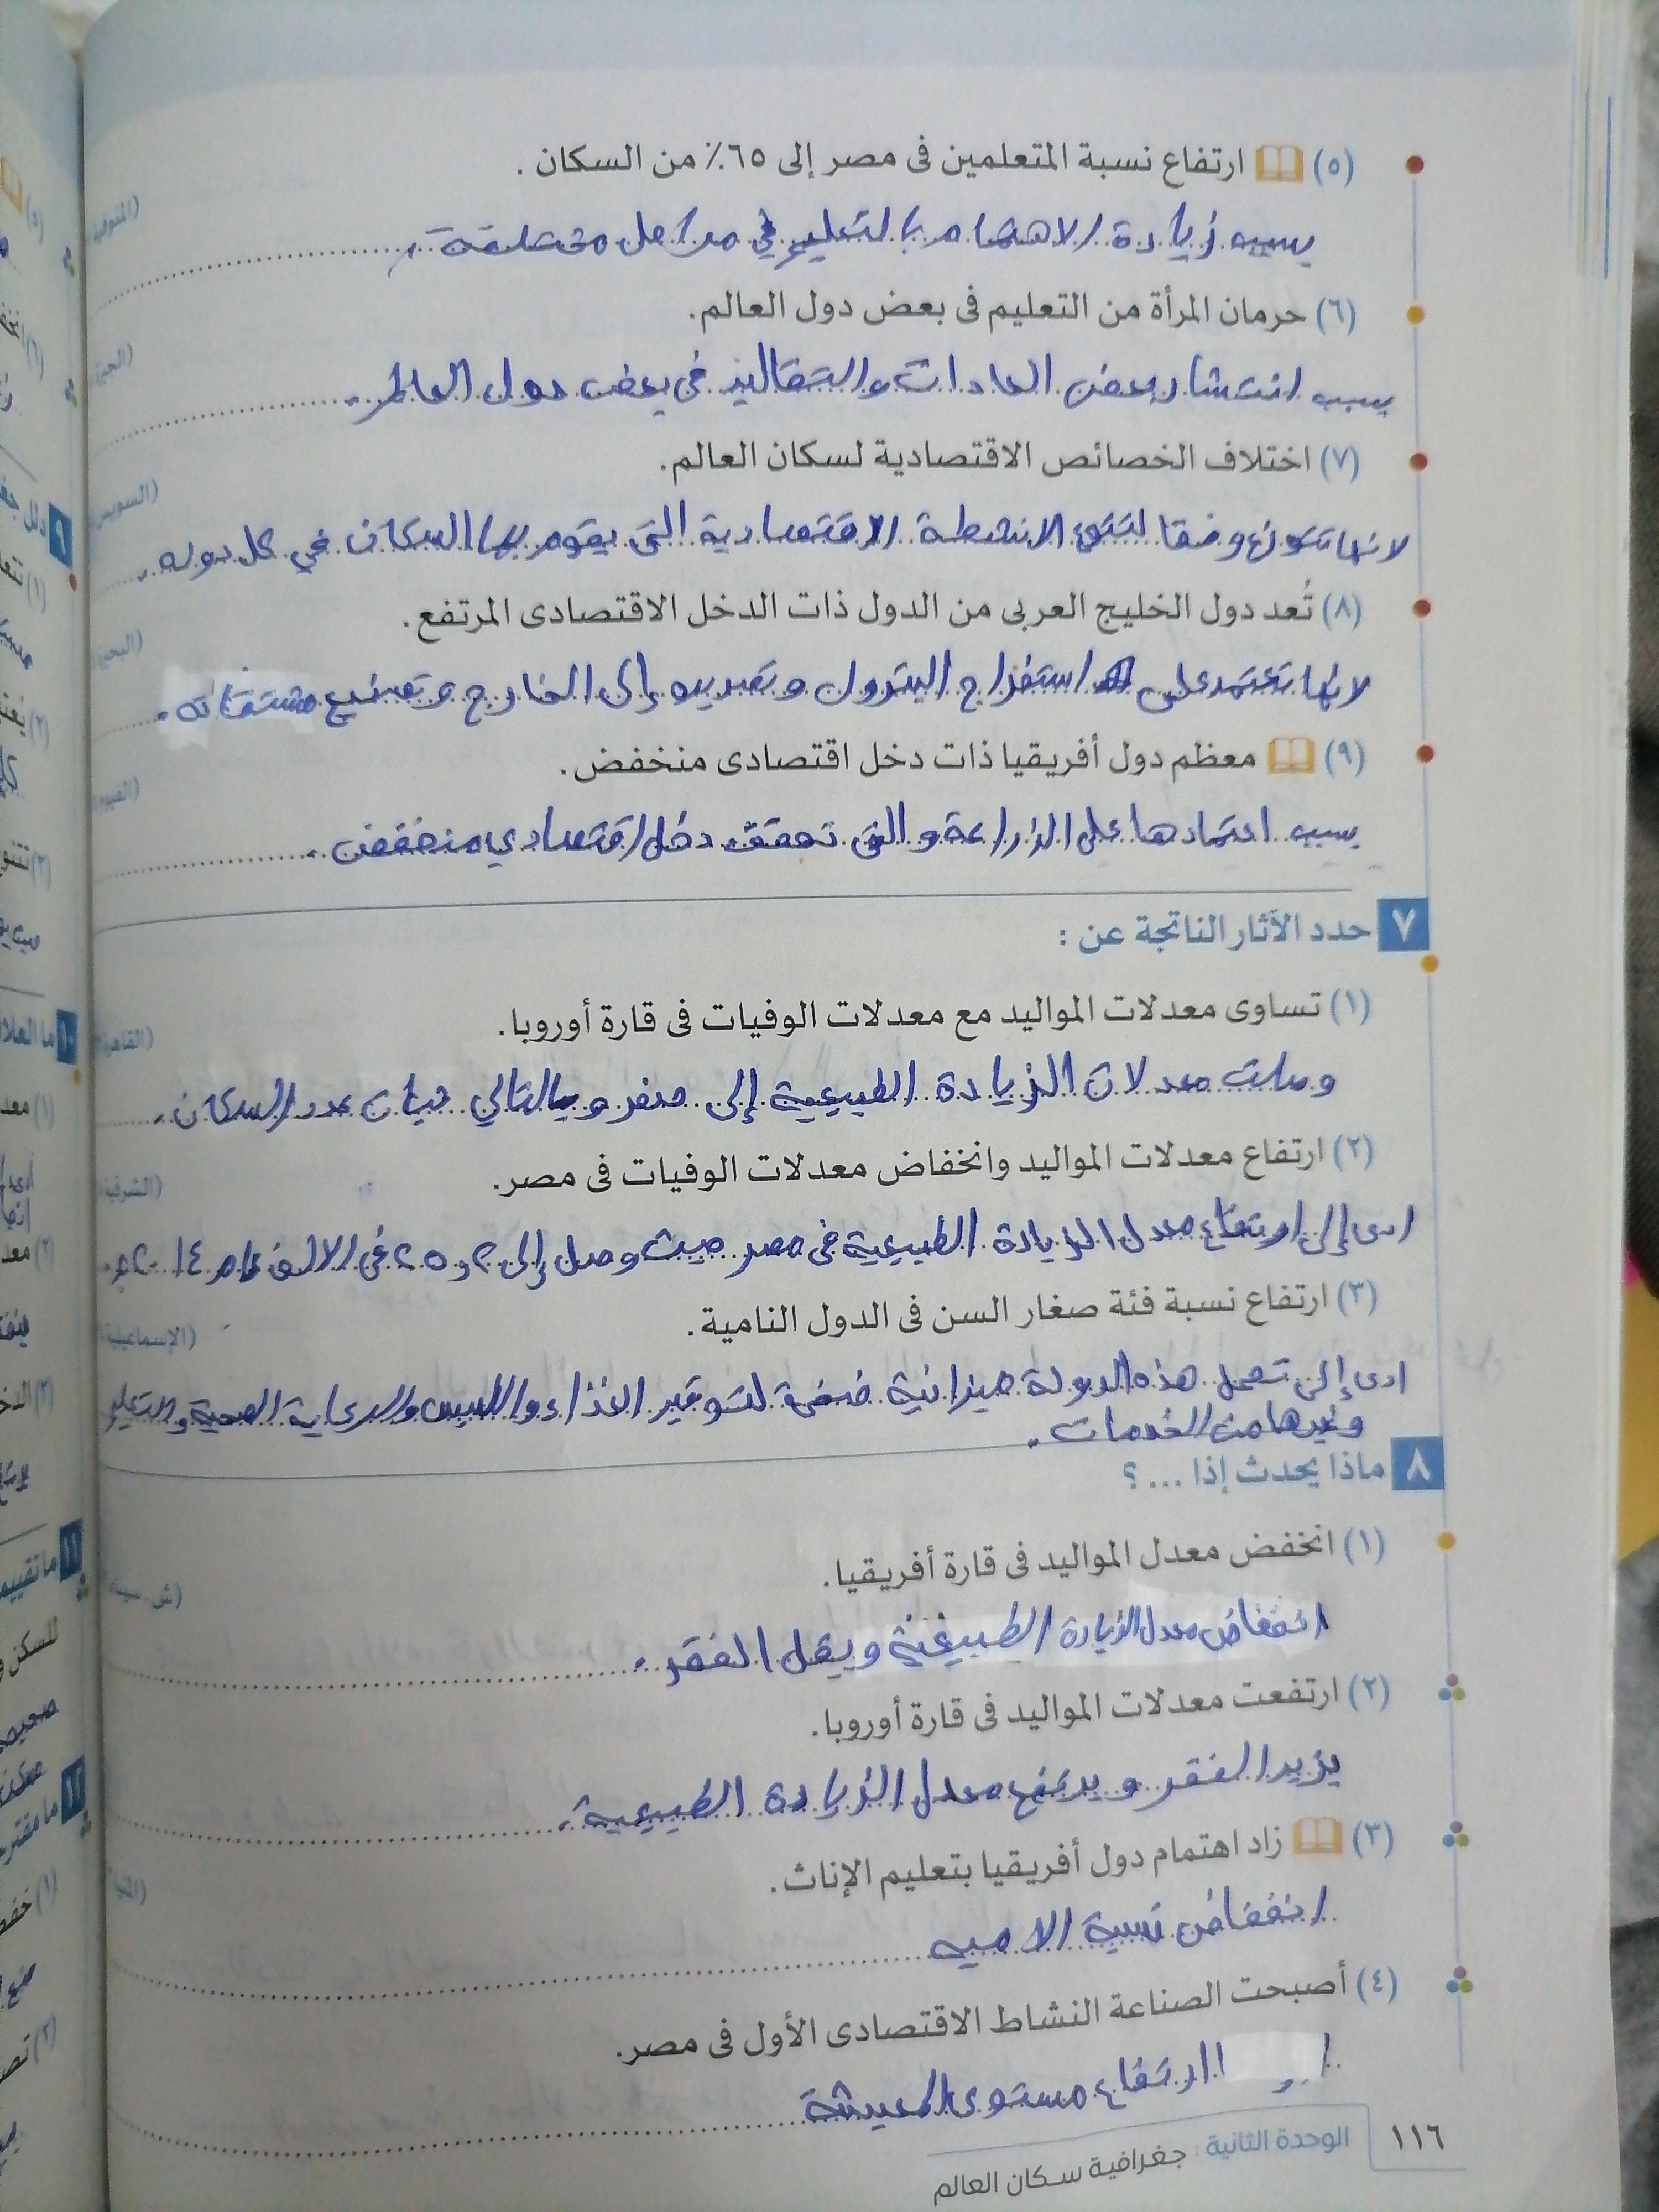 (٥) ارتفاع نسبة المتعلمين فى مصر إلى ٦٥٪ من السكان .
(المنوفية
بسبب زيادة الاهتمام بالتعليم في مراحل مختلفة.
(٦) حرمان المرأة من التعليم فى بعض دول العالم.
(الجيزة
بسبب انتشار بعض العادات والتقاليد في بعض دول العالم.
(٧) اختلاف الخصائص الاقتصادية لسكان العالم.
(السويس
لانها تتنوع وفقا لتنوع الانشطة الاقتصادية التى يقوم بها السكان في كل دوله.
(٨) تُعد دول الخليج العربى من الدول ذات الدخل الاقتصادى المرتفع.
(البحيرة
لانها تعتمد على استخراج البترول و تصديره إلى الخارج و تصنيع مشتقاته.
(٩) معظم دول أفريقيا ذات دخل اقتصادى منخفض.
(الفيوم
بسبب اعتمادها على الزراعة و التى تحقق دخل اقتصادي منخفض.
٧ حدد الآثار الناتجة عن :
(١) تساوى معدلات المواليد مع معدلات الوفيات فى قارة أوروبا.
(القاهرة
وصلت معدلات الزيادة الطبيعية إلى صفر و بالتالي ثبات عدد السكان.
(٢) ارتفاع معدلات المواليد وانخفاض معدلات الوفيات فى مصر.
(الشرقية
ادى إلى ارتفاع معدل الزيادة الطبيعية فى مصر حيث وصل إلى ٢٥٫٢ فى الالف عام ٢٠١٤م.
(٣) ارتفاع نسبة فئة صغار السن فى الدول النامية.
(الإسماعيلية
ادى إلى تحمل هذه الدولة ميزانية ضخمة لتوفير الغذاء و الملبس والرعاية الصحية و التعليم
وغيرها من الخدمات.
٨ ماذا يحدث إذا ... ؟
(١) انخفض معدل المواليد فى قارة أفريقيا.
(ش. سيناء
انخفاض معدل الزيادة الطبيعية و يقل الفقر.
(٢) ارتفعت معدلات المواليد فى قارة أوروبا.
يزيد الفقر و يرتفع معدل الزيادة الطبيعية.
(٣) زاد اهتمام دول أفريقيا بتعليم الإناث.
انخفاض نسبة الاميه
(٤) أصبحت الصناعة النشاط الاقتصادى الأول فى مصر.
ارتفاع مستوى المعيشة
١١٦ الوحدة الثانية : جغرافية سكان العالم